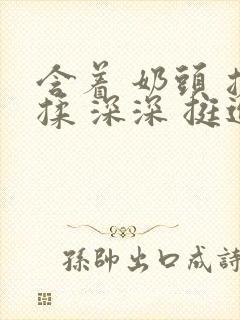 含着 奶頭 
揉 深深 挺
孫帥出口成詩